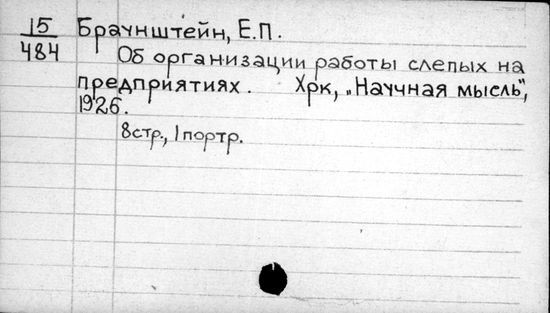 15
484
Браунштейн, Е.П.
Об организации работы слепых на
предприятиях. Хрк, „Научная мысль",
1926.
8стр., 1портр.